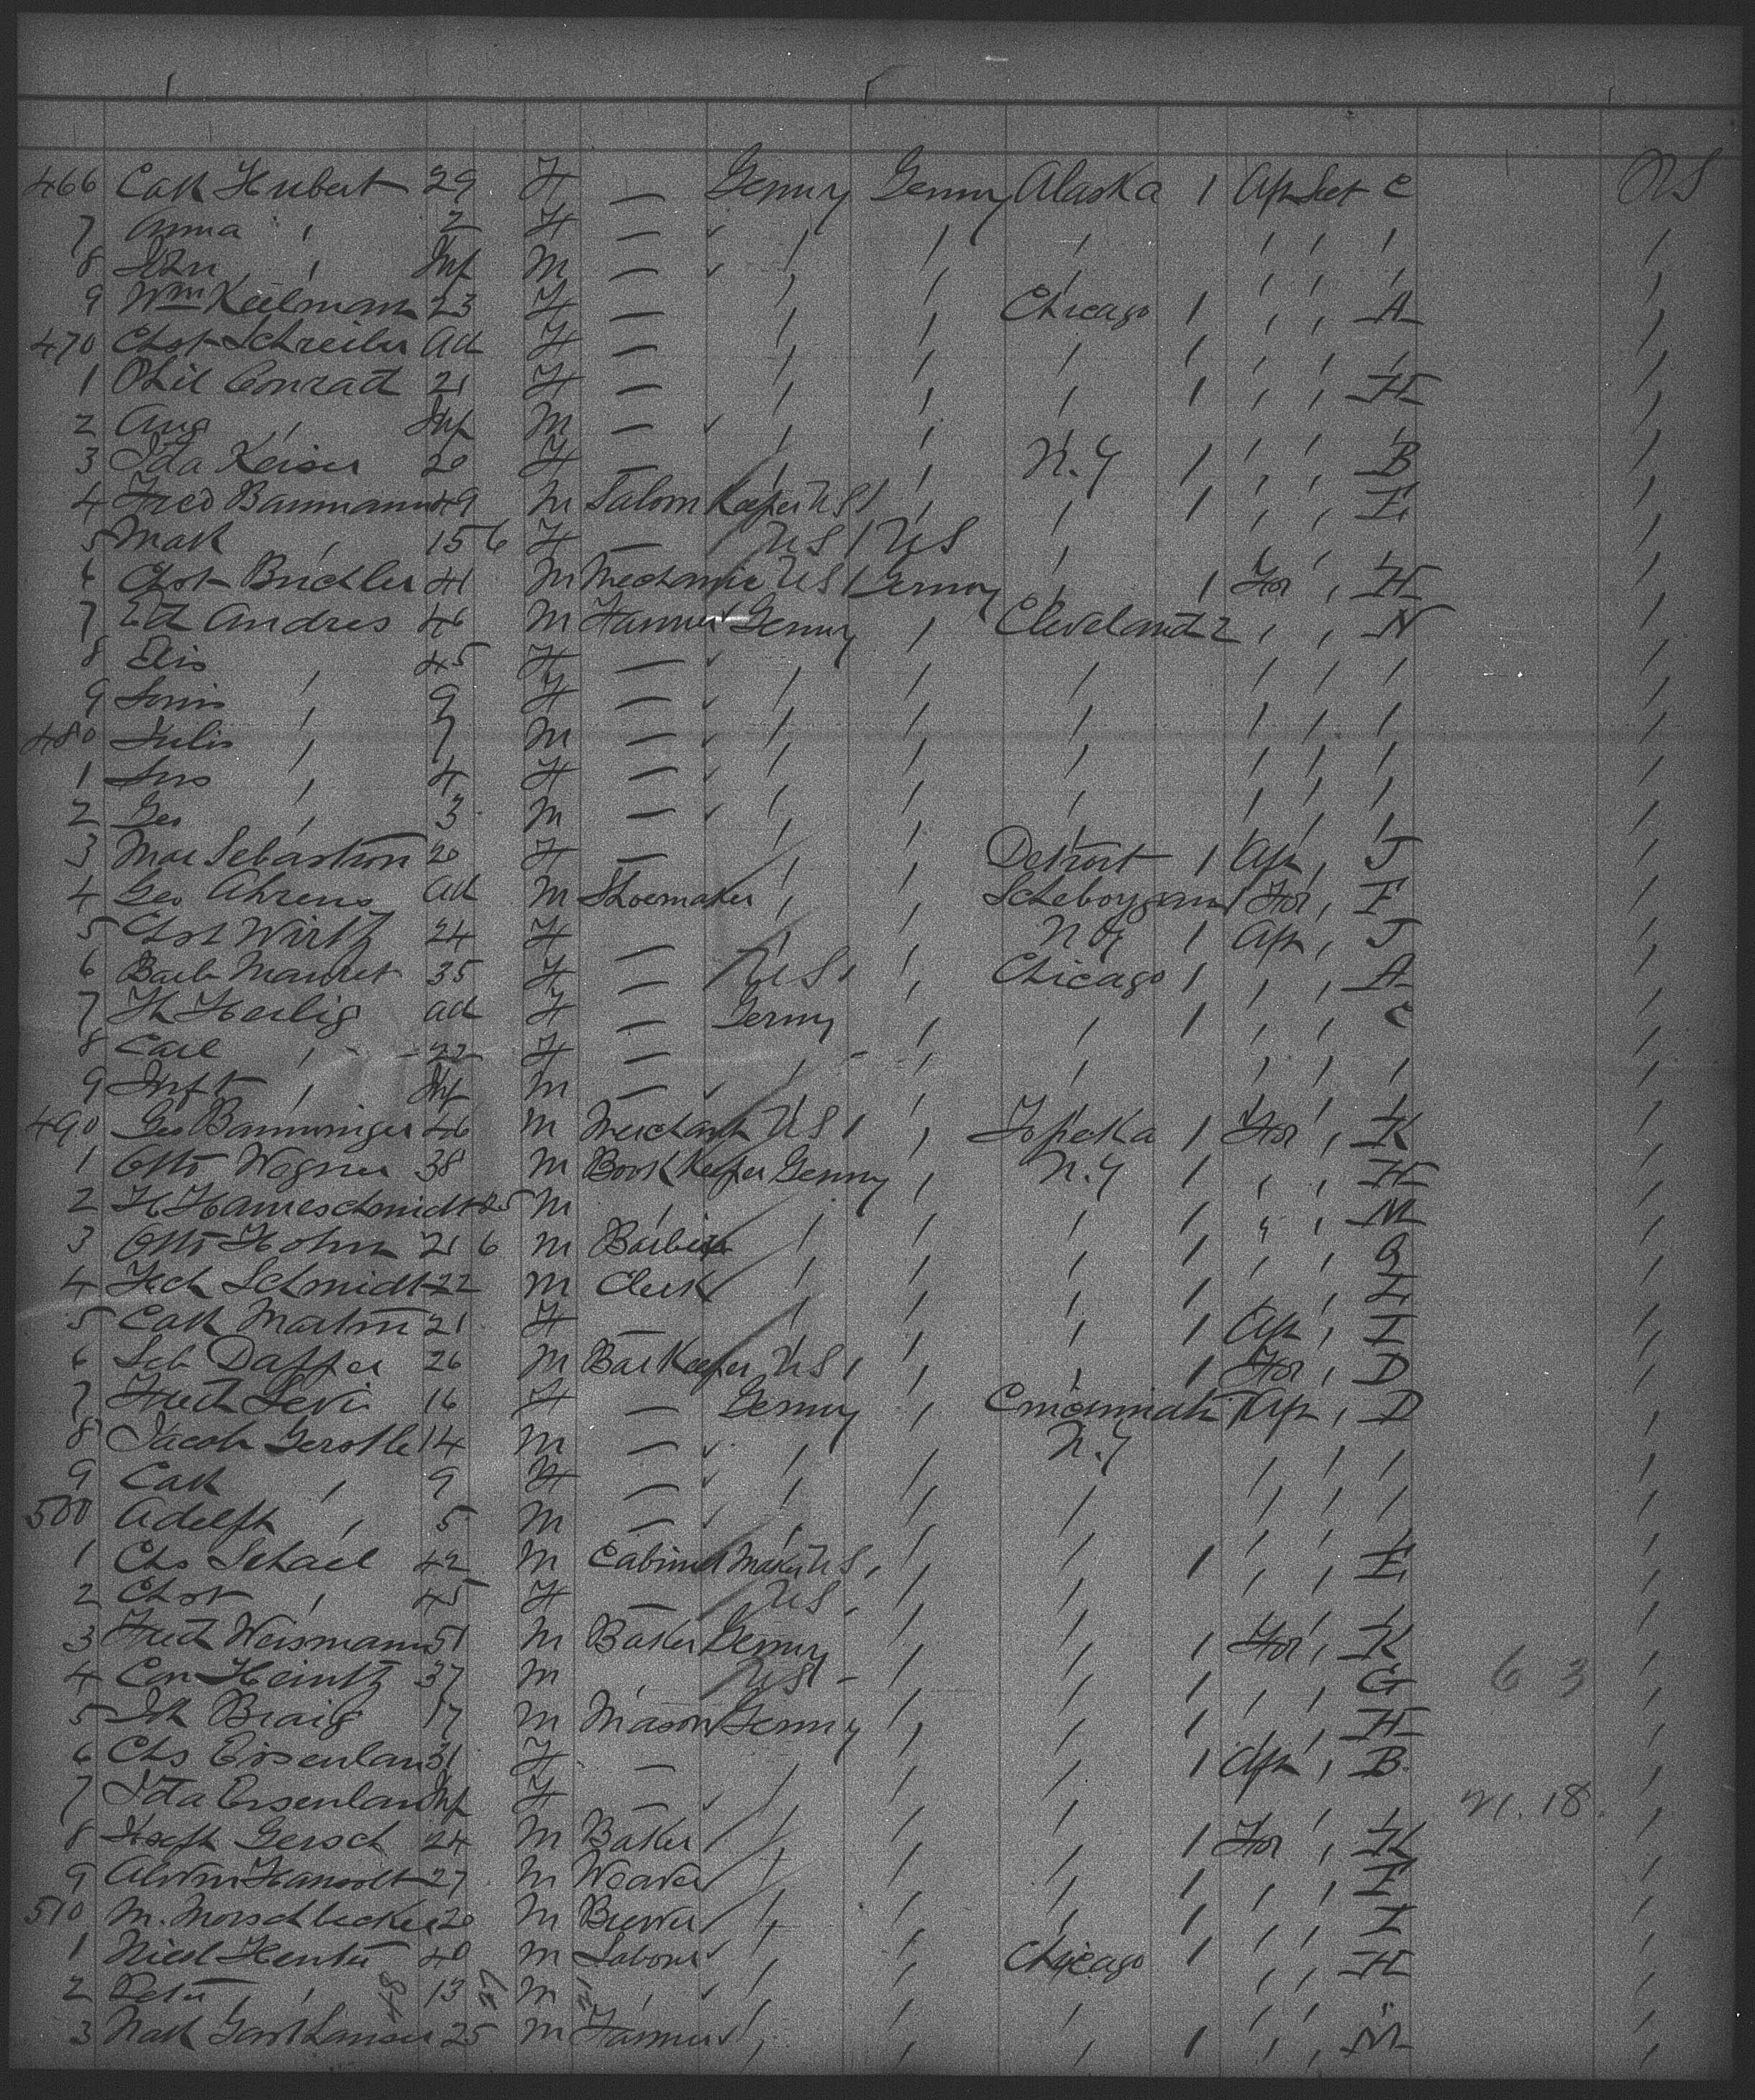 466 Cath Hubert 29 F — Germy Germy Alaska 1 Aft Set C US
7 Anna " 2 F — ✓ " " " " " " "
8 John " Inf M — ✓ " " " " " " "
9 Wm Keelmann 23 F — " " Chicago 1 " " A "
470 Chst Schreiber ad F — " " " 1 " " " "
1 Phil Conrad 21 F — " " " 1 " " H "
2 Aug " Inf M — ✓ " " " " " " "
3 Ida Keiser 20 F — " " N.Y 1 " " B "
4 Fred Baumann 49 M Saloon Keeper US 1 " " 1 " " I "
5 Mak " 15 6 F — US 1 US " " " " "
6 Chst Buchler 41 M Mechanic US 1 Germy " 1 For " H "
7 Ed Andres 46 M Farmer ✓ Germy " Cleveland 2 " " N "
8 Elis " 45 F — ✓ " " " " " " "
9 " 9 F — ✓ " " " " " " "
480 Julis " 7 M — ✓ " " " " " " "
1 " 4 F — ✓ " " " " " " "
2 Geo " 3 M — ✓ " " " " " " "
3 Mar Sebastian 20 F — " " Detroit 1 Aft " J "
4 Geo Ahrens ad M Shoemaker " " Scheboygan 1 For " F "
5 Chst Wirth 24 F — " " N Y 1 Aft " J "
6 Barb Mauret 35 F — US 1 " Chicago 1 " " A "
7 Th Heilig ad F — Germy " " 1 " " C "
8 Carl " 22 F — " " " " " " "
9 Inft " Inf M — ✓ " " " " " " "
490 Geo Banninger 46 M Merchant US 1 " Topeka 1 For " K "
1 Otto Wagner 38 M Book Keeper Germy " N.Y 1 " " H "
2 H Hameschmidt 25 M " " " " 1 " " M "
3 Otto Hohm 21 6 M Barbier " " " 1 " " G "
4 Fech Schmidt 22 M Clerk " " " 1 " " I "
5 Cath Martin 21 F — " " " 1 Aft " I "
6 Seb Daffer 26 M Bar Keeper US 1 " " 1 For " D "
7 Fried Levi 16 F — Germy " Cincinnati 1 Aft " D "
8 Jacob Gerstle 14 M — ✓ " " N.Y " " " "
9 Cath " 9 F — ✓ " " " " " " "
500 Adolph " 5 M — ✓ " " " " " " "
1 Chs Schael 42 M Cabinet Maker US 1 " " 1 " " E "
2 Chst " 45 F — US 1 " " " " " "
3 Fried Weismann 51 M Baker Germy " " 1 For " K "
4 Con Heintz 37 M " US 1 " " 1 " " G 6 3 "
5 Braig 17 M Mason Germy " " 1 " " H "
6 Chs Eisenlau 31 F — " " " 1 Aft " B "
7 Ida Eisenlau Inf F — ✓ " " " " " " 18 "
8 Josef Gersch 24 M Baker " " " 1 For " K "
9 Alvin Hanolt 27 M Weaver " " " 1 " " F "
510 M. Morschbecker 20 M Brewer " " " 1 " " I "
1 Nicol Hentu 40 M Labour ✓ " " Chicago 1 " " H "
2 Peter " 13 M " ✓ " " " " " "
3 25 M Farmer ✓ " " " 1 " " M "